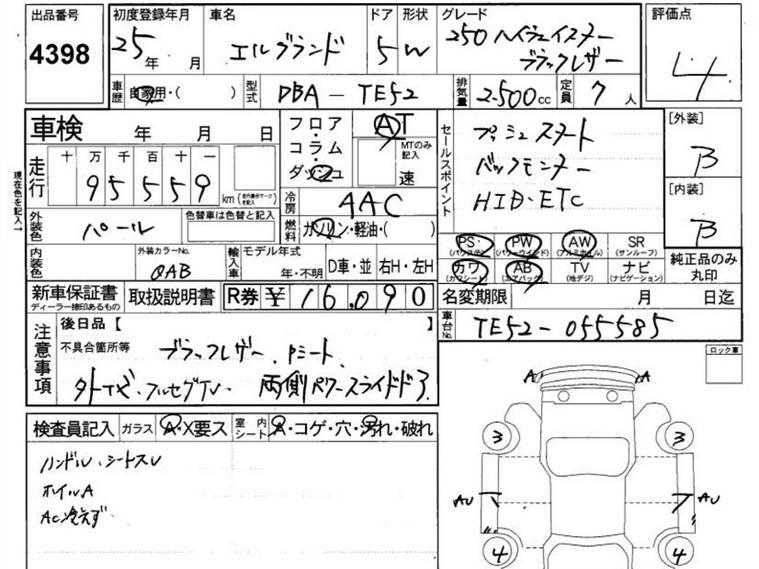 出品番号 初度登録年月 車名 ドア 形状 グレード 評価点
4398 25年 月 エルグランド 5 W 250 ハイウェイスター
ブラックレザー 4
車歴 自家用・( ) 型式 DBA-TE52 排気量 2.500cc 定員 7人
車検 年 月 日 フロア・コラム・ダッシュ AT MTのみ記入 速 セールスポイント プッシュスタート [外装] B
走行 十万千百十一 バックモニター
現在色を記入↓ 95559 km (走行要示マークを記入) HID・ETC [内装] B
冷房 AAC
外装色 パール 色替車は色替と記入 燃料 ガソリン・軽油・( )
PS (パワステ) PW (パワーウィンド) AW (アルミホイル) SR (サンルーフ) 純正品のみ丸印
内装色 外装カラーNo. QAB 輸入車 モデル年式 年・不明 D車・並 右H・左H
カワ (カワシート) AB (エアバック) TV (地デジ) ナビ (ナビゲーション)
新車保証書 ディーラー捺印あるもの 取扱説明書 R券 ¥ 16.090 名変期限 月 日迄
注意事項 後日品【 】 車台No. TE52-055585
不具合箇所等 ブラックレザー. Pシート ロック車
外TV. フルセグTV. 両側パワースライドドア
A A
検査員記入 ガラス A・X要ス 室内シート A・コゲ・穴・汚れ・破れ
3 3
ハンドルU. シートスレ
ホイルA AU AU
AC冷えず
4 4